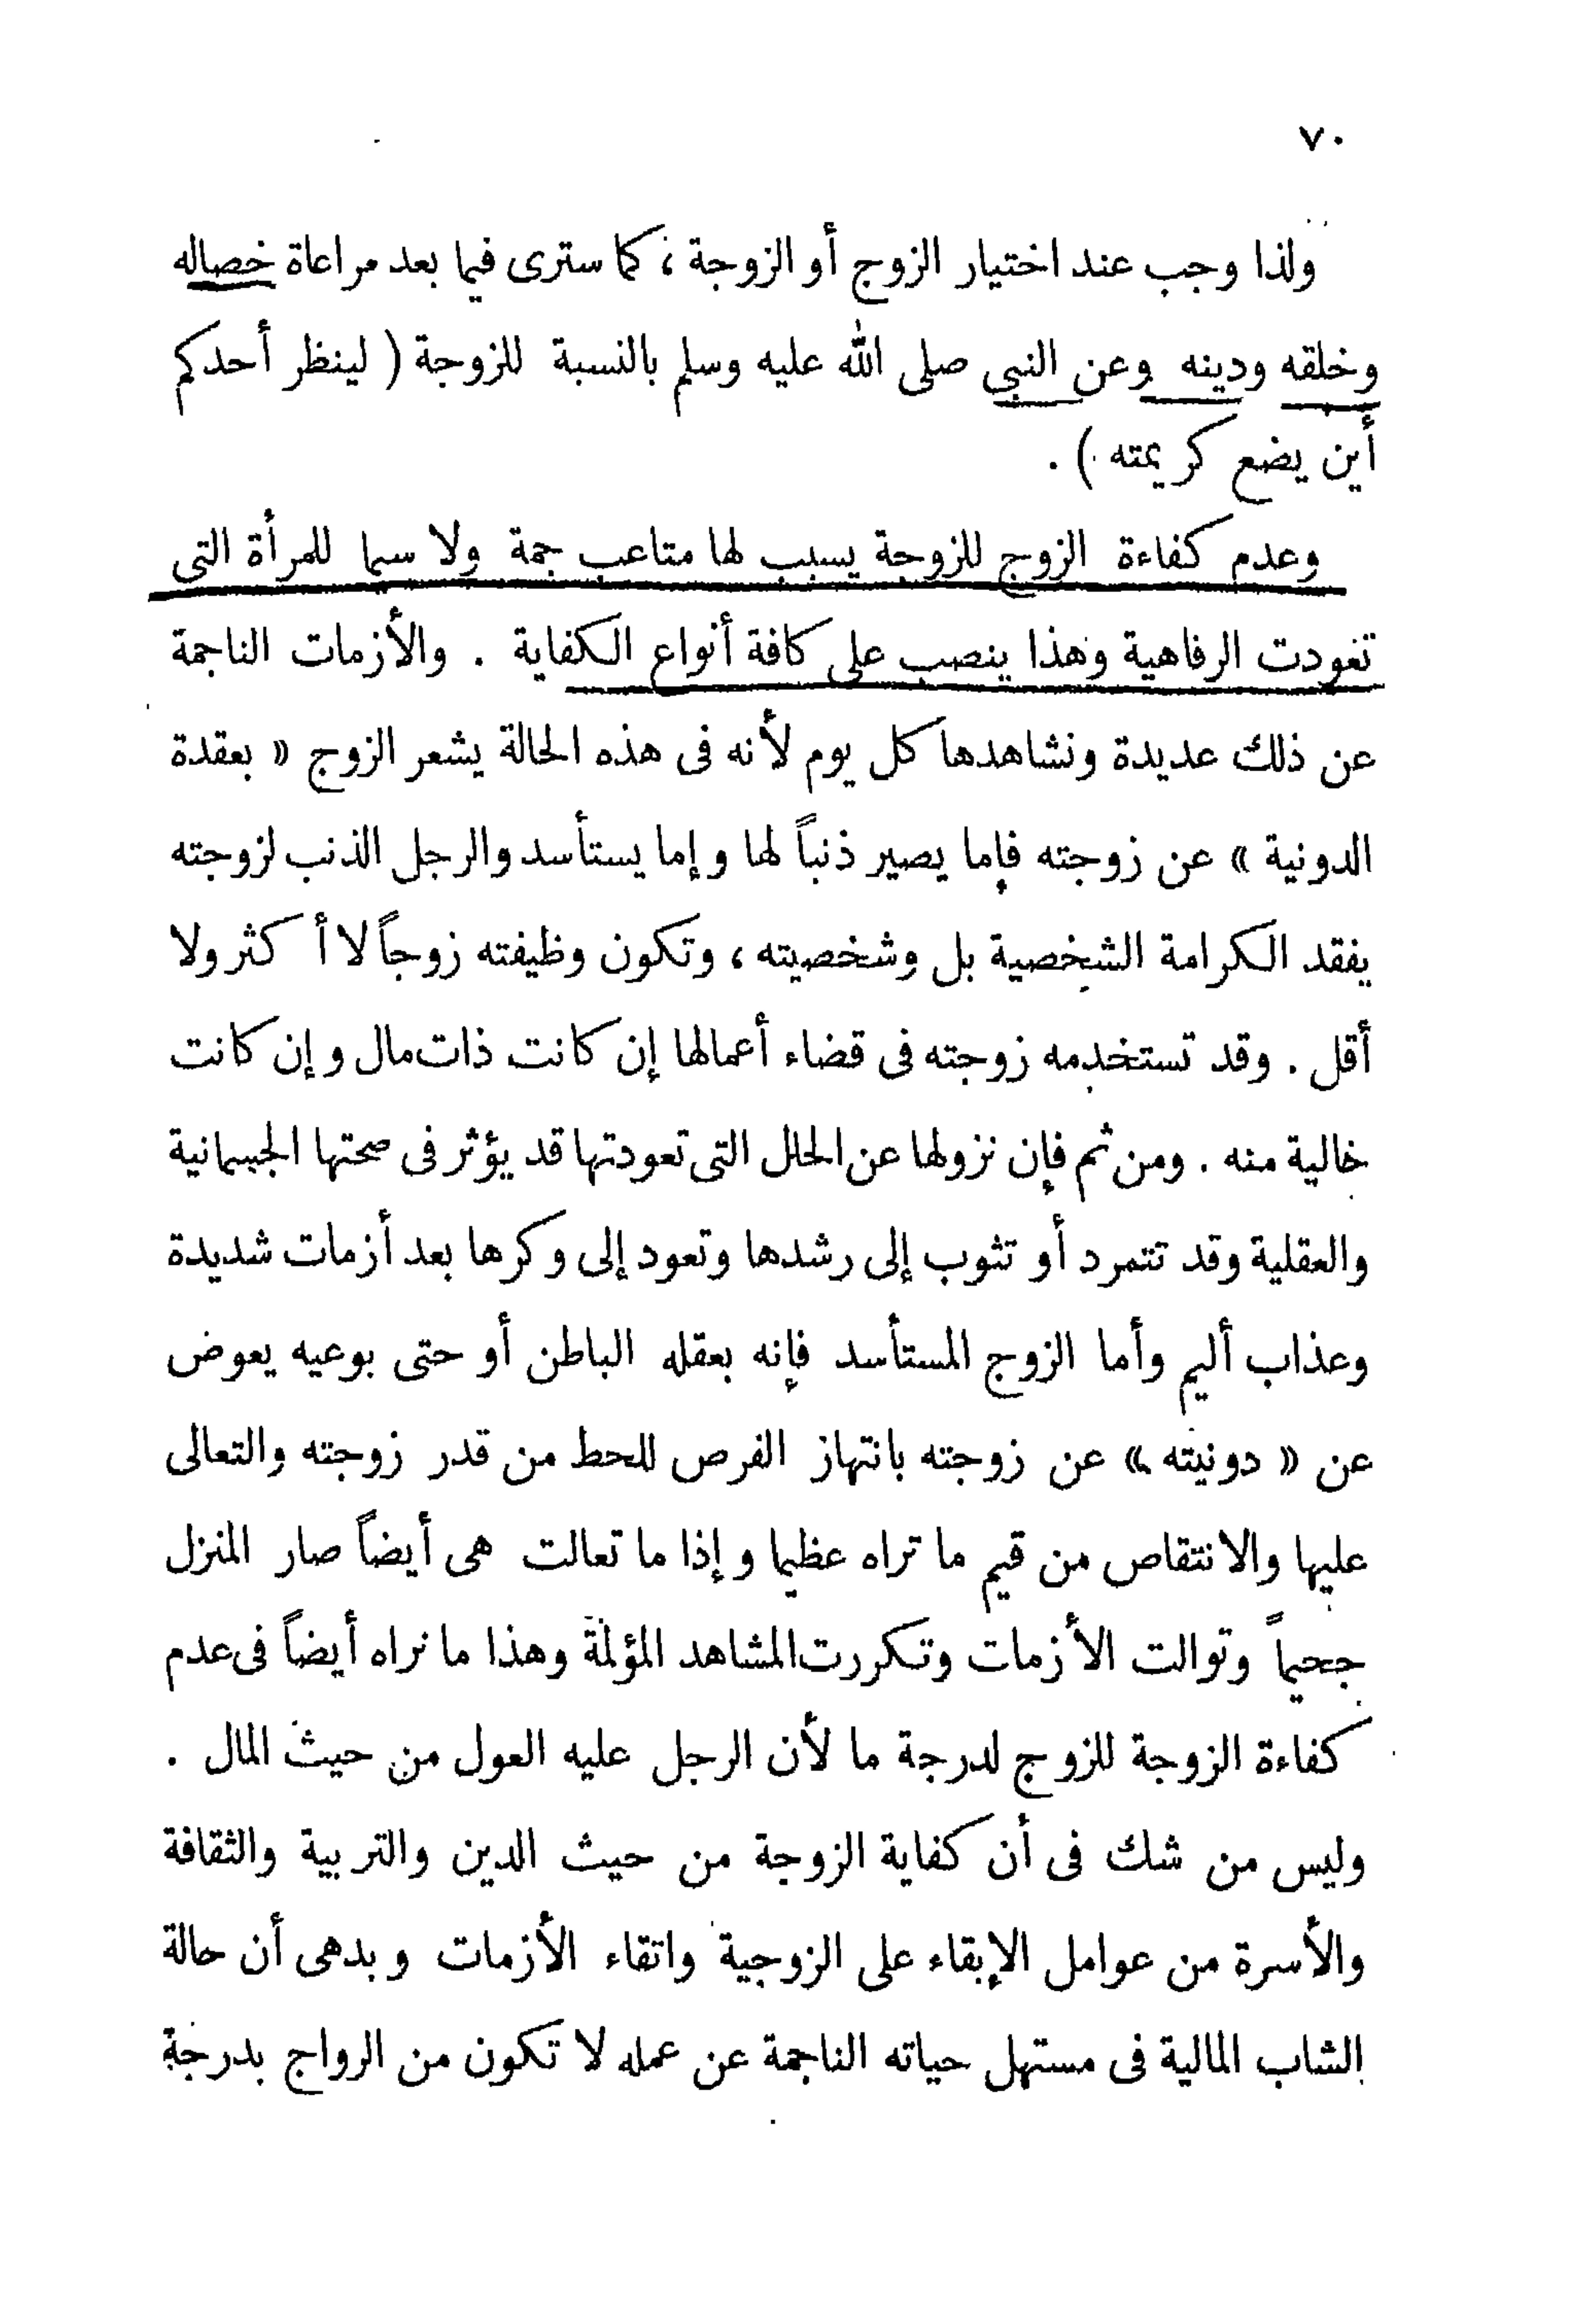 ٧٠
ولذا وجب عند اختيار الزوج أو الزوجة ، كما سترى فيما بعد مراعاة خصاله
وخلقه ودينه وعن النبى صلى الله عليه وسلم بالنسبة للزوجة ( لينظر أحدكم
أين يضع كريمته ) .
وعدم كفاءة الزوج للزوجة يسبب لها متاعب جمة ولا سيما للمرأة التى
تعودت الرفاهية وهذا ينصب على كافة أنواع الكفاية . والأزمات الناجمة
عن ذلك عديدة ونشاهدها كل يوم لأنه فى هذه الحالة يشعر الزوج « بعقدة
الدونية » عن زوجته فإما يصير ذنباً لها وإما يستأسد والرجل الذنب لزوجته
يفقد الكرامة الشخصية بل وشخصيته ، وتكون وظيفته زوجاً لا أكثر ولا
أقل . وقد تستخدمه زوجته فى قضاء أعمالها إن كانت ذات مال وإن كانت
خالية منه . ومن ثم فإن نزولها عن الحلل التى تعودتها قد يؤثر فى صحتها الجسمانية
والعقلية وقد تتمرد أو تثوب إلى رشدها وتعود إلى وكرها بعد أزمات شديدة
وعذاب أليم وأما الزوج المستأسد فإنه بعقله الباطن أو حتى بوعيه يعوض
عن « دونيته » عن زوجته بانتهاز الفرص للحط من قدر زوجته والتعالى
عليها والانتقاص من قيم ما تراه عظيما وإذا ما تعالت هى أيضاً صار المنزل
جحيماً وتوالت الأزمات وتكررت المشاهد المؤلمة وهذا ما نراه أيضاً فى عدم
كفاءة الزوجة للزوج لدرجة ما لأن الرجل عليه العول من حيث المال .
وليس من شك فى أن كفاية الزوجة من حيث الدين والتربية والثقافة
والأسرة من عوامل الإبقاء على الزوجية واتقاء الأزمات وبدهى أن حالة
الشاب المالية فى مستهل حياته الناجمة عن عمله لا تكون من الرواج بدرجة